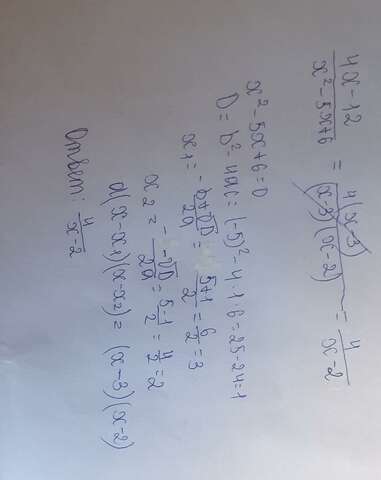 4x-12 / x²-5x+6 = 4(x-3) / (x-3)(x-2) = 4 / x-2
x²-5x+6=0
D=b²-4ac=(-5)²-4·1·6=25-24=1
x₁= -b+√D / 2a = 5+1 / 2 = 6 / 2 =3
x₂= -√D / 2a = 5-1 / 2 = 4 / 2 =2
a(x-x₁)(x-x₂)= (x-3)(x-2)
Ответ: 4 / x-2